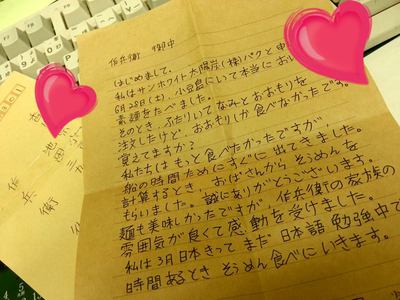 作兵衛 御中
はじめまして。
私はサンホワイト太陽岸(株)パクと申
6月28日(土)、小豆島にいて本当においし
素麺をたべました。
そのとき、ふたりいてなみとおおもりを
注文したけど、おおもりしか食べなかったです。
覚えてますか?
私たちはもっと食べたかったですが、
船の時間ためにすぐに出てきました。
計算するとき、おばさんからそうめんを
もらいました。誠にありがとうございます。
麺も美味しかったですが、作兵衛の家族の
雰囲気が良くて感動を受けました。
私は3月日本きって まだ日本語勉強中で
時間あるとき そうめん食べにいきます。
池田
作兵衛